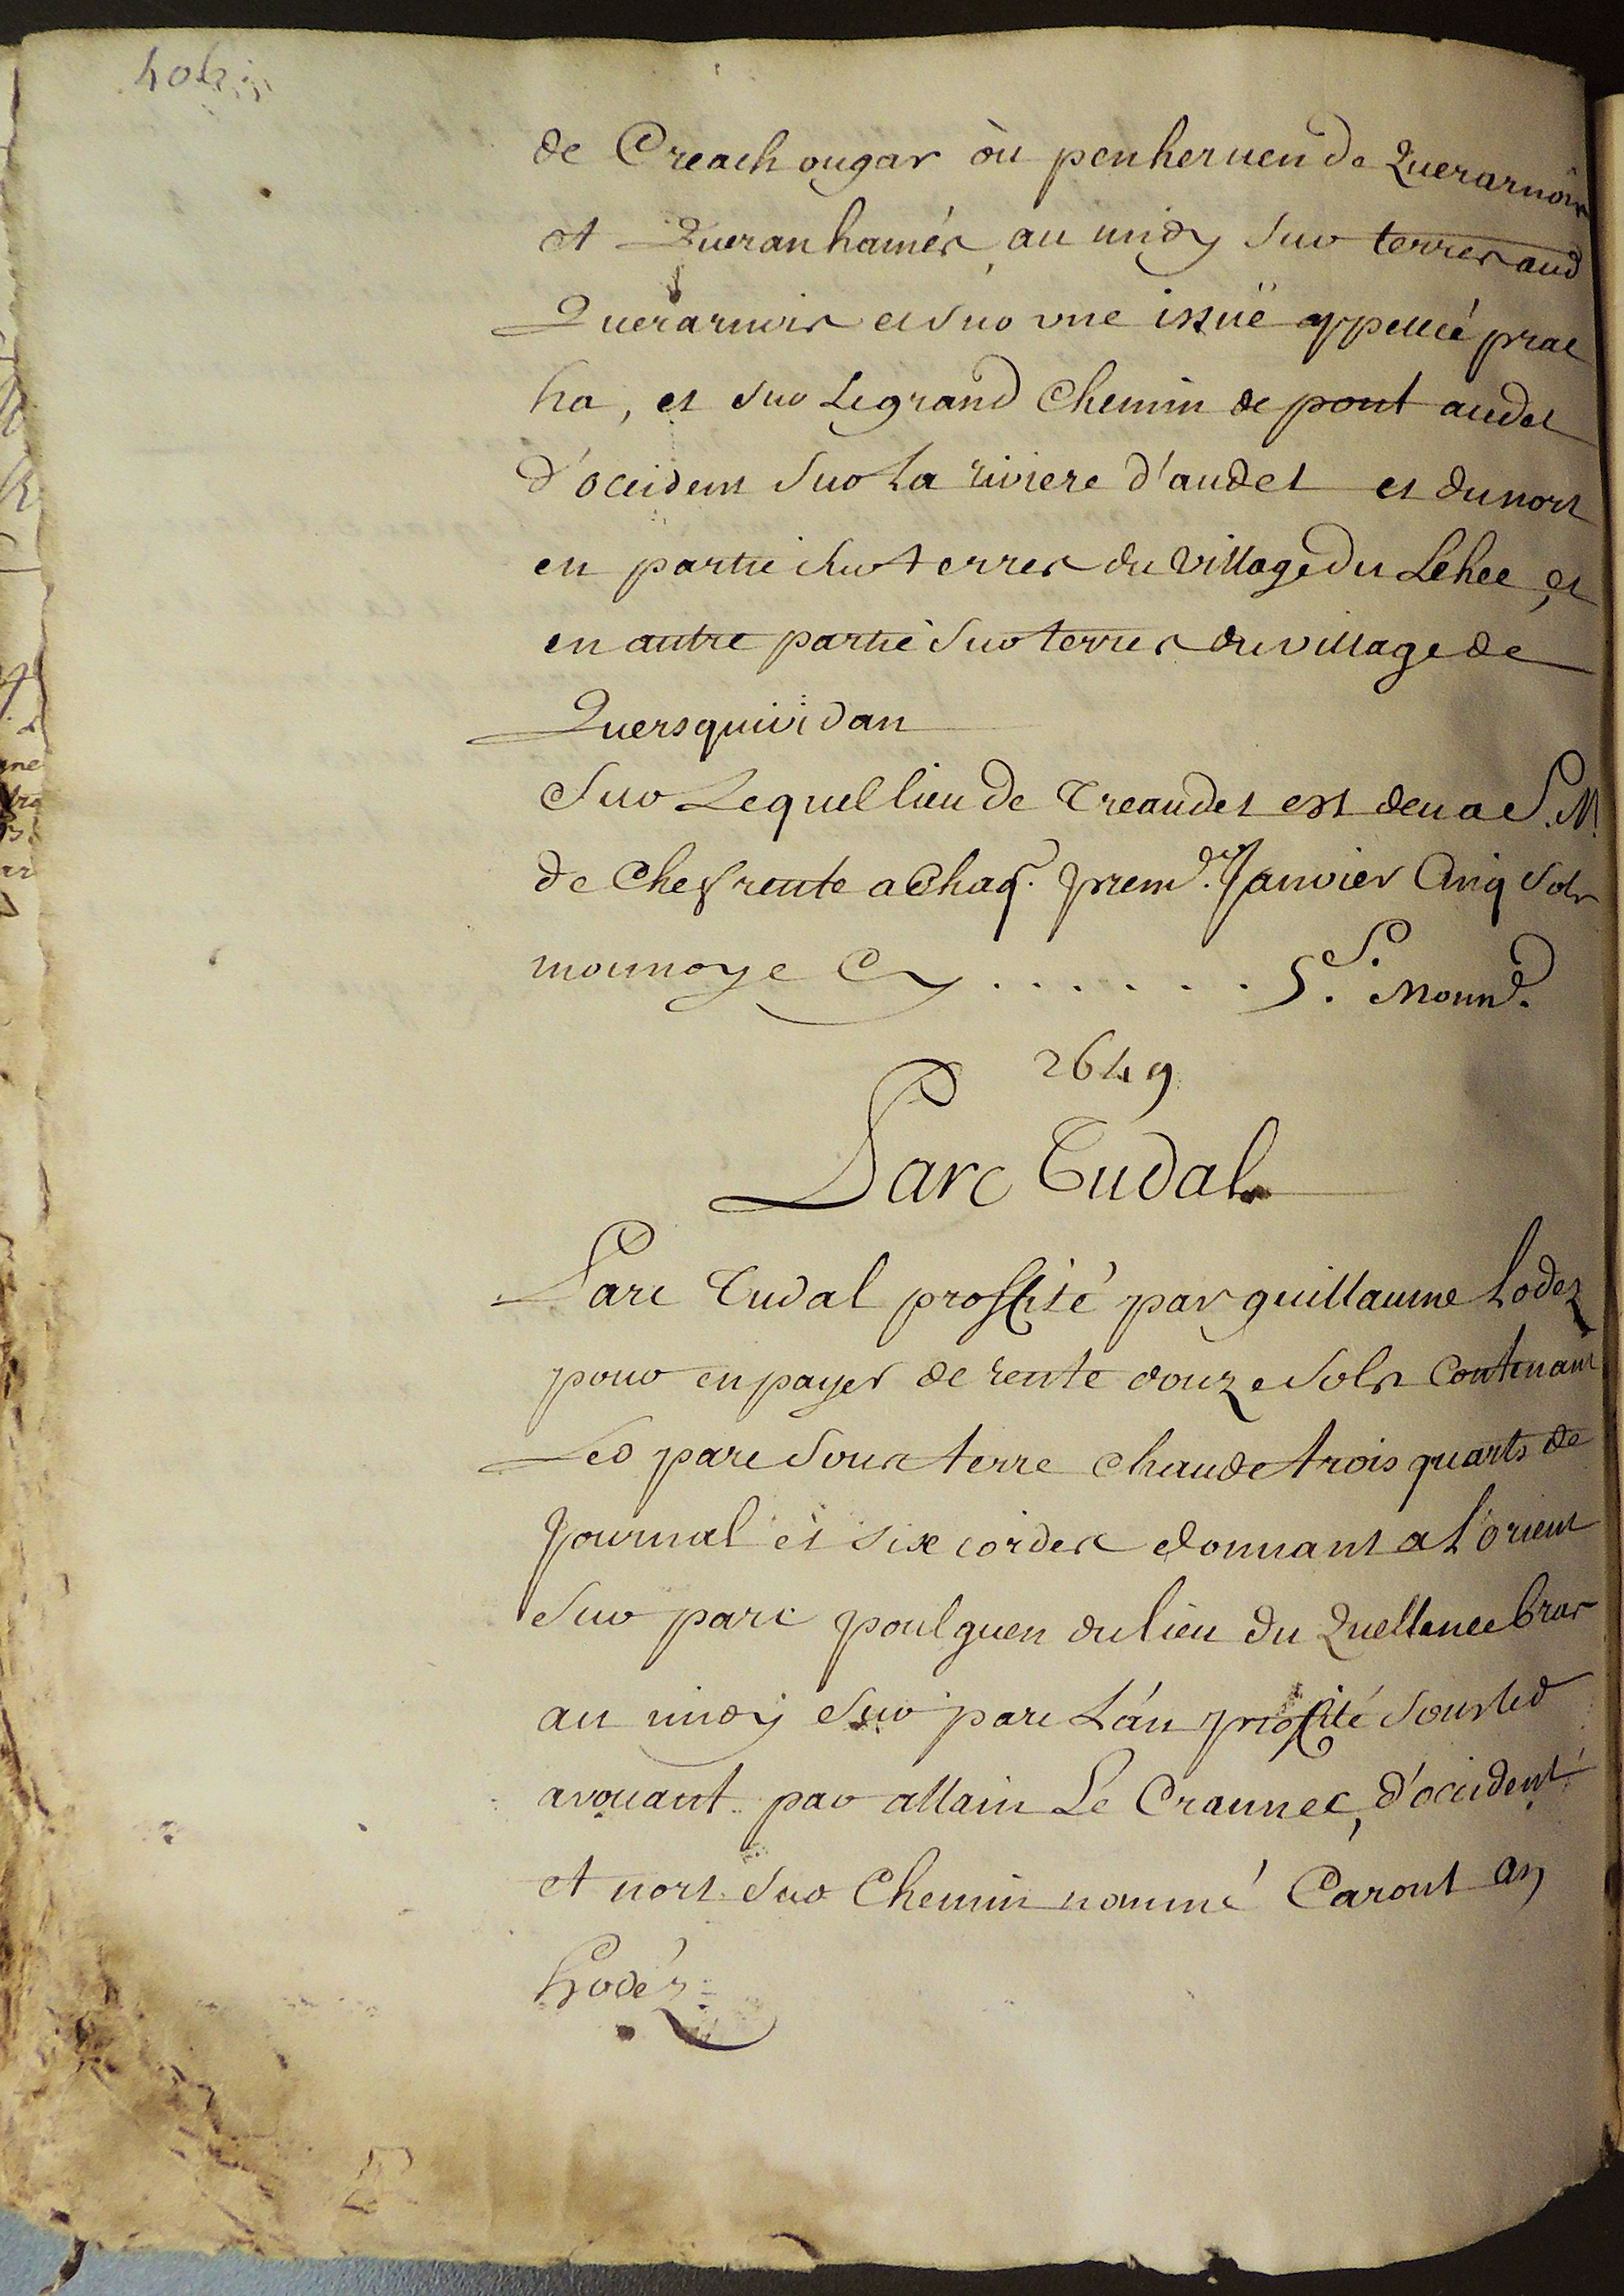 de Creach ougar où penheruen de Querarnoir
et Queranhamés, au midy sur terres aud
Querarnoir et sur une issuë appellé prat
ha, et sur Le grand Chemin de pont audet
d'occident sur La riviere d'audet et du nort
en partie sur terres du village du Lehec, et
en autre partie sur terres du village de
Quersquividan
Sur Lequel lieu de Treaudet est deu a S. M.
de Chefrente a Chaq. prem.er Janvier Cinq sols
monnoye Cy . . . . . . . 5.s Monn.e
2649
Parc Tudal
Parc Tudal proffité par guillaume hodez
pour en payer de rente douze sols Contenant
Led parc sous terre chaude trois quarts de
Journal et six cordes donnant a L'orient
sur parc poulguen du lieu du Quellenec bras
au midy sur parc Lan proffité sous led
avouant par allain Le Crannec, d'occident
et nort sur Chemin nommé Caront an
hodéz